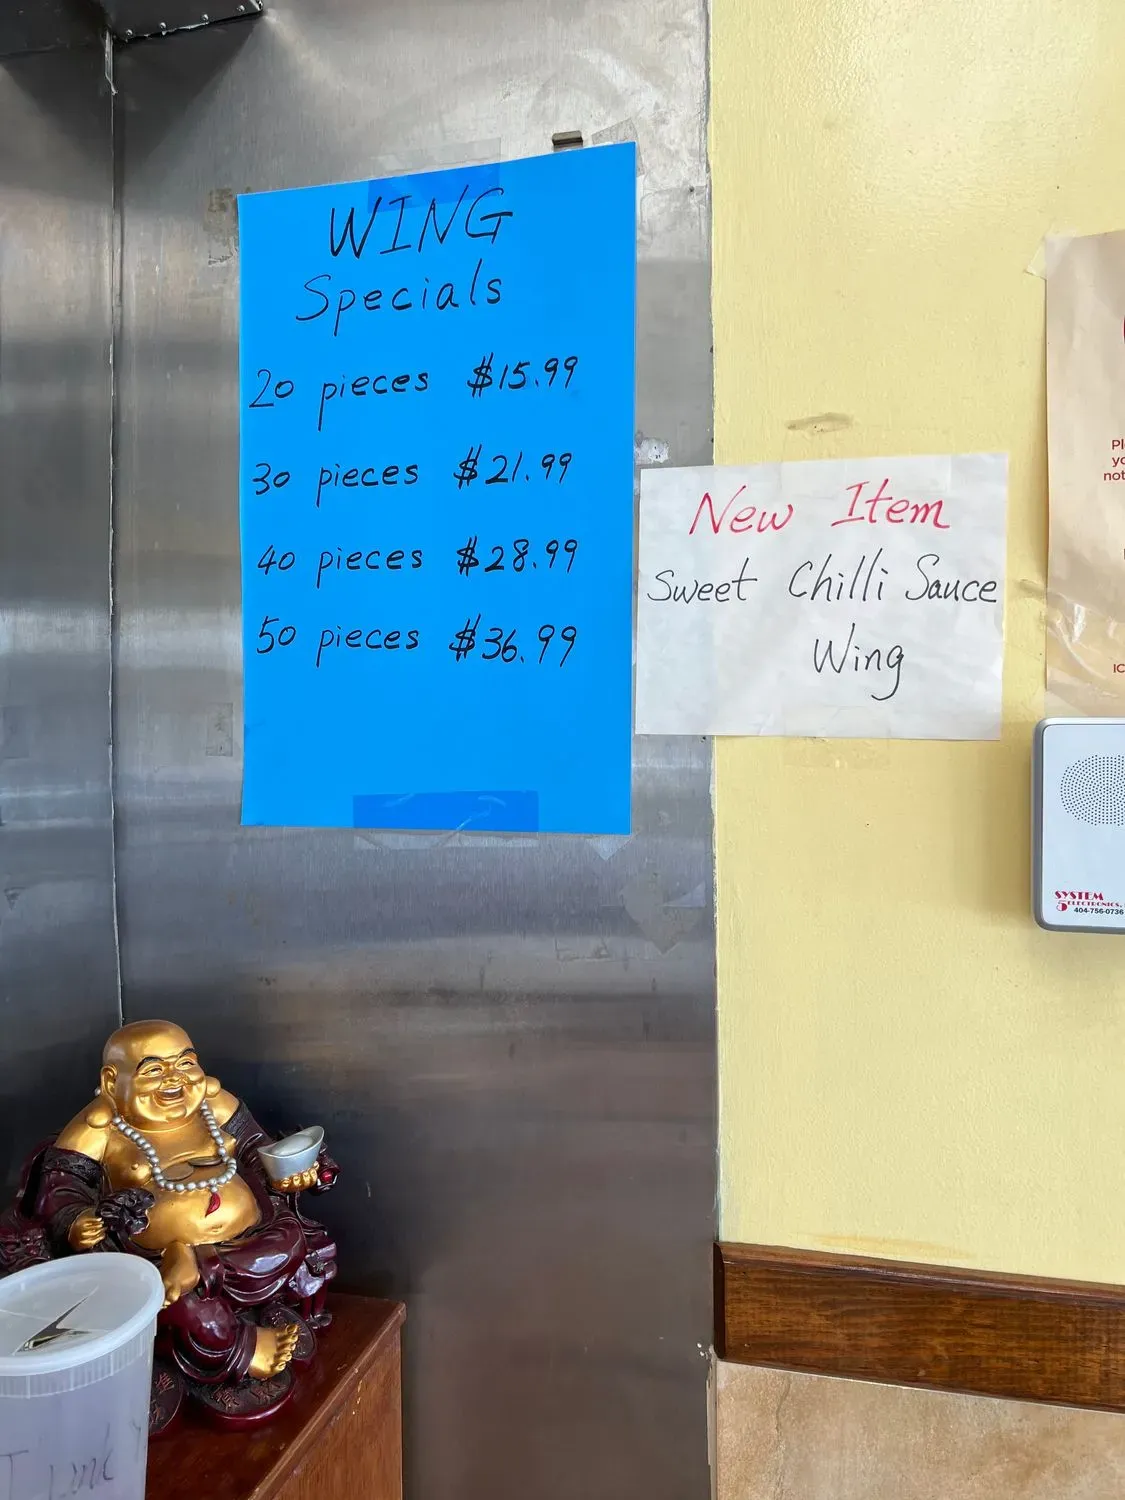 WING
Specials
20 pieces $15.99
30 pieces $21.99
40 pieces $28.99
50 pieces $36.99
New Item
Sweet Chilli Sauce
Wing
SYSTEM
5 ELECTRONICS,
404-756-0736